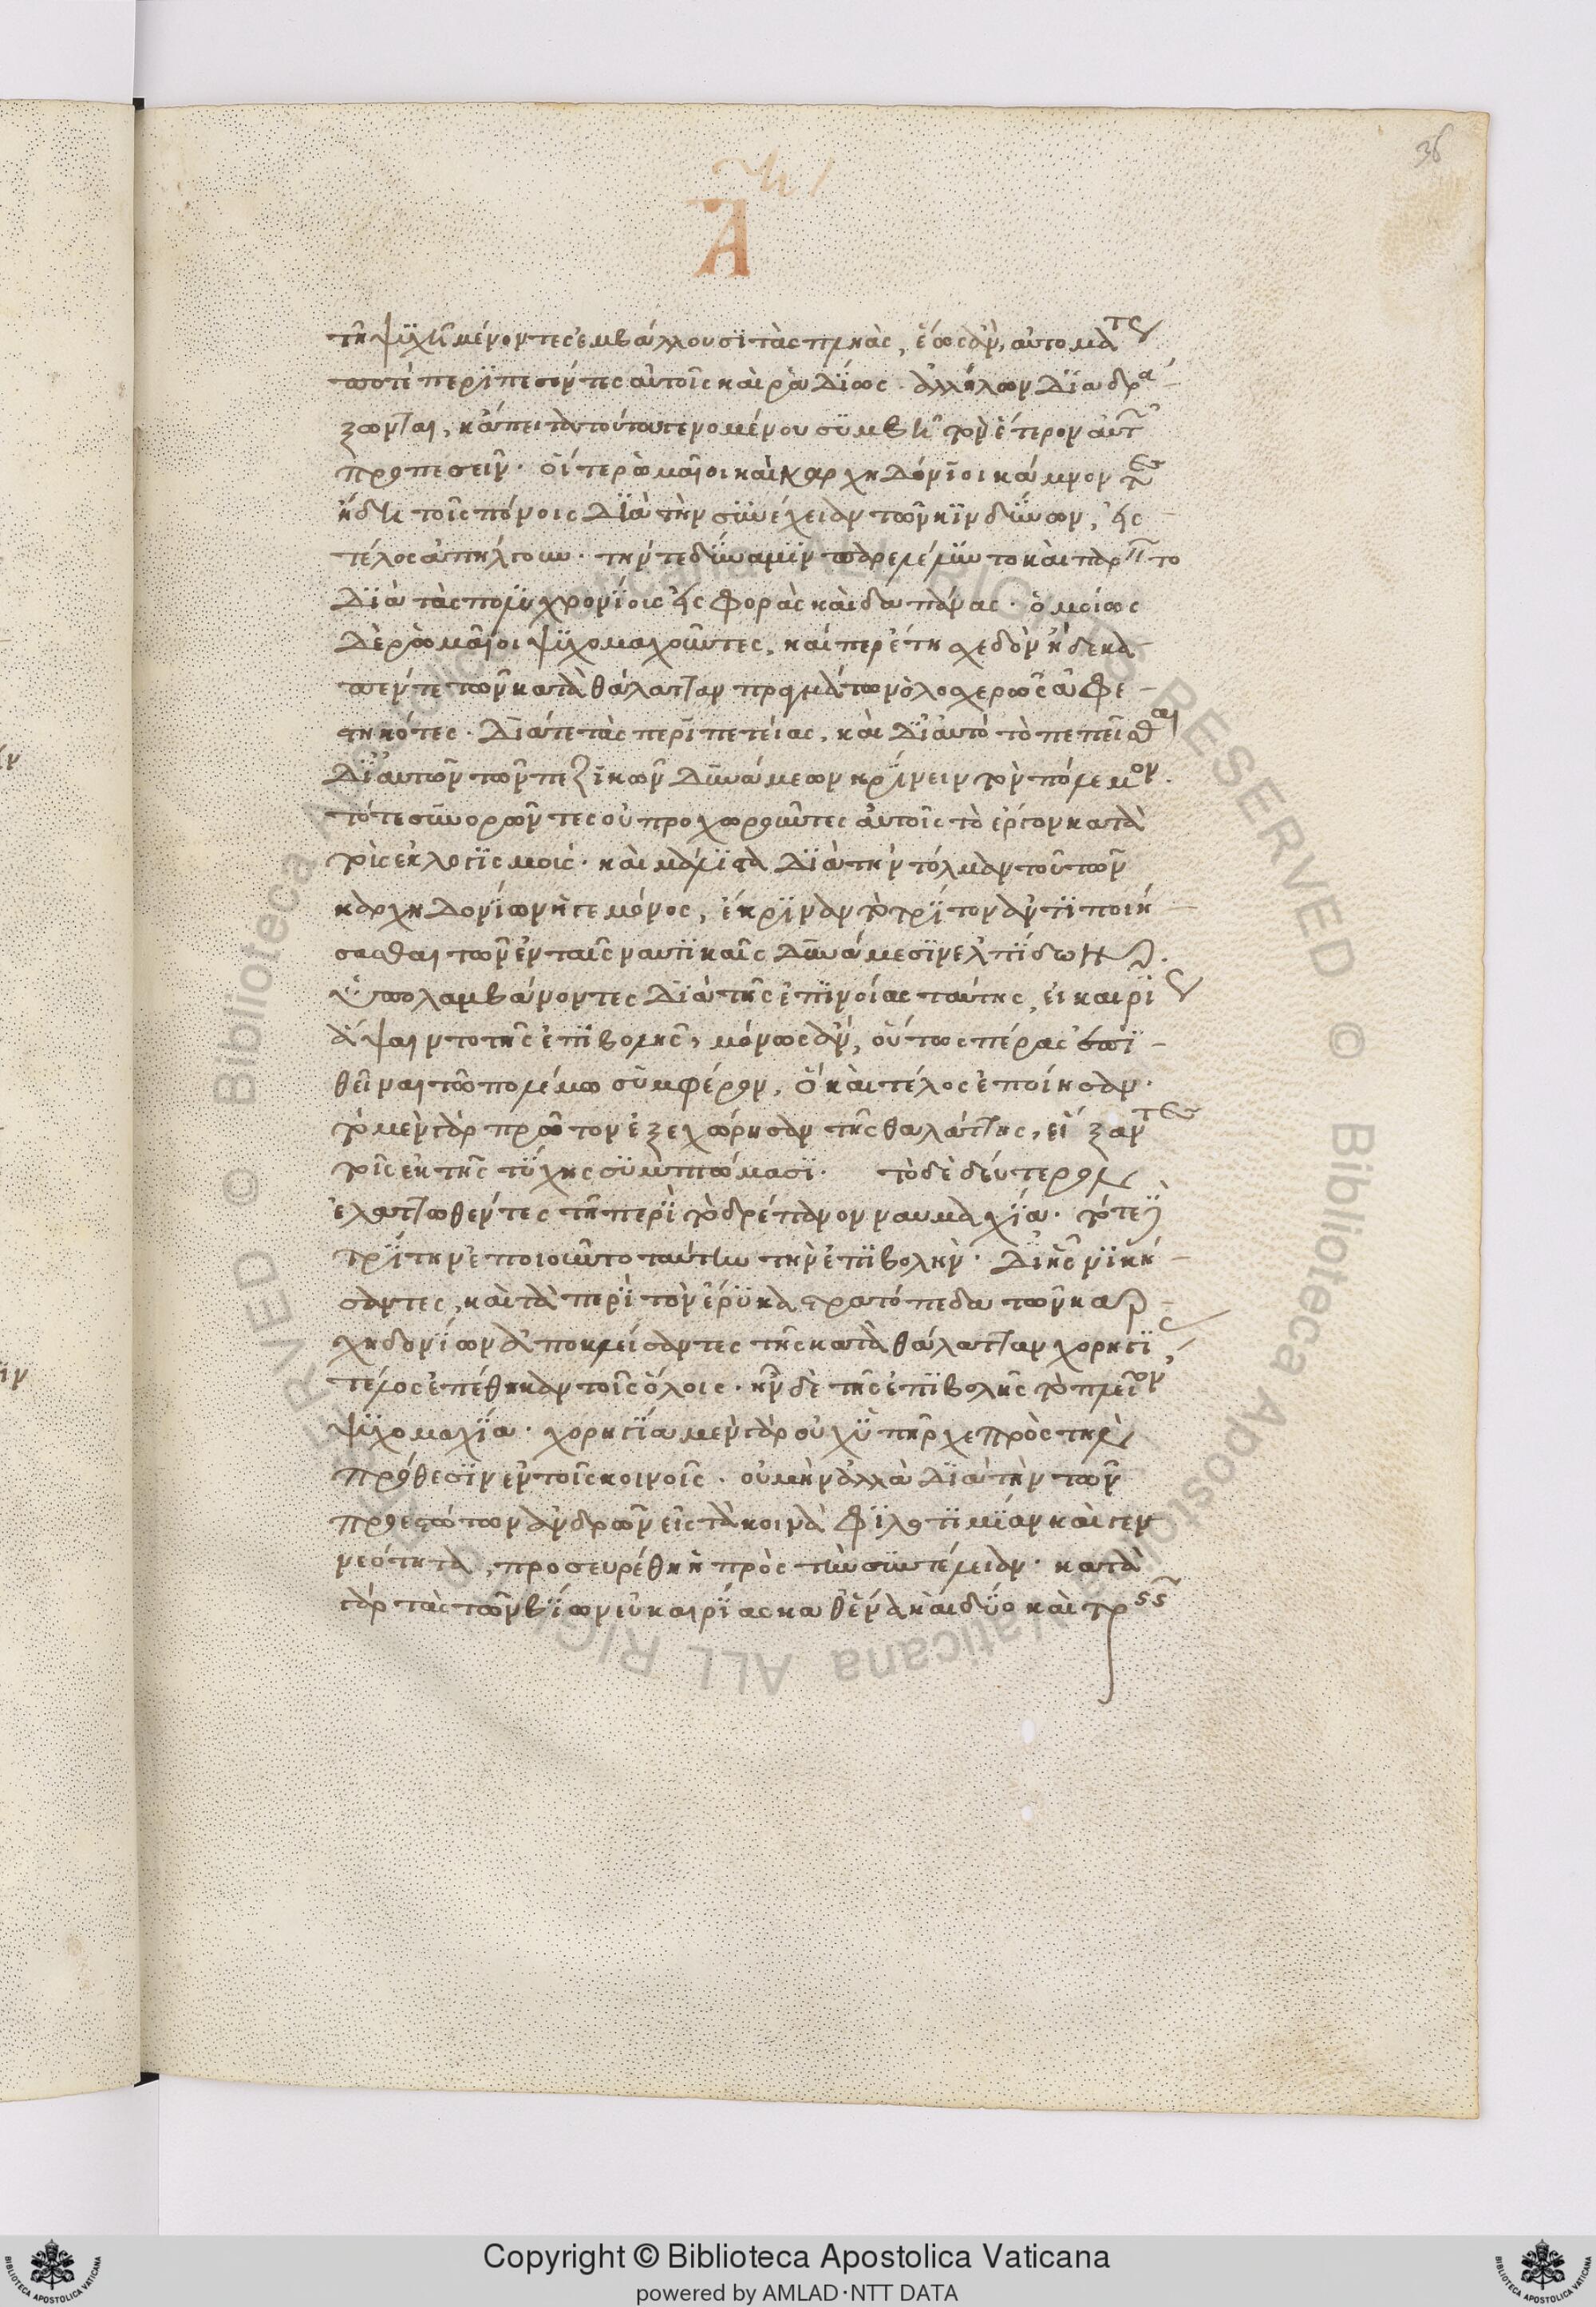 36
Α
τῆ ψυχῆ μένοντες ἐμβάλλουσι τὰς πληγὰς, ἕως ἂν, αὐτομάτου
ποτὲ περιπεσόντες αὐτοῖς καιρῶ δίως. ἀλλήλων διαδρά-
ξωνται, κἄπειτα τούτου γενομένου συμβῆ τὸν ἕτερον αὐτῶν
προπεσεῖν. οἵ τε ῥωμαῖοι καὶ καρχηδόνιοι κάμνοντες
ἤδη τοῖς πόνοις διὰ τὴν συνέχειαν τῶν κινδύνων, εἰς
τέλος ἀπήλγουν. τήν τε δύναμιν παρελέλυντο καὶ παρεῖντο
διὰ τὰς πολυχρονίοις εἰς φορὰς καὶ δαπάνας. ὁμοίως
δὲ ῥωμαῖοι ψυχομαχοῦντες, καίπερ ἔτη σχεδὸν ἤδη δέκα
πέντε τῶν κατὰ θάλατταν πραγμάτων ὁλοσχερῶς ἀφε-
στηκότες. διά τε τὰς περιπετείας, καὶ δι' αὐτὸ τὸ πεπεῖσθαι
δι' αὐτῶν τῶν πεζικῶν δυνάμεων κρίνειν τὸν πόλεμον.
τότε συνορῶντες οὐ προχωροῦντες αὐτοῖς τὸ ἔργον κατὰ
τοὺς ἐκλογισμούς. καὶ μάλιστα διὰ τὴν τόλμαν τοῦ τῶν
καρχηδονίων ἡγεμόνος, ἔκριναν τὸ τρίτον ἀντιποιή-
σασθαι τῶν ἐν ταῖς ναυτικαῖς δυνάμεσιν ἐλπίδων.
ὑπολαμβάνοντες διὰ τῆς ἐπινοίας ταύτης, εἰ καιρίου
ἅψαιντο τῆς ἐπιβολῆς, μόνως ἂν, οὕτως πέρας ἐπι-
θεῖναι τῶ πολέμω συμφέρον, ὃ καὶ τέλος ἐποίησαν.
τὸ μὲν γὰρ πρῶτον ἐξεχώρησαν τῆς θαλάττης, εἴξαντες
τοῖς ἐκ τῆς τύχης συμπτώμασι. τὸ δὲ δεύτερον
ἐλαττωθέντες τῆ περὶ τὸ δρέπανον ναυμαχία. τότε δὲ
τρίτην ἐποιοῦντο ταύτην τὴν ἐπιβολὴν. δι' ἧς νικήσ-
σαντες, καὶ τὰ περὶ τὸν ἔρυκα στρατόπεδα τῶν καρ-
χηδονίων ἀποκλείσαντες τῆς κατὰ θάλατταν χορηγίας,
τέλος ἐπέθηκαν τοῖς ὅλοις. ἦν δὲ τῆς ἐπιβολῆς τὸ πλεῖον
ψυχομαχία. χορηγία μὲν γὰρ οὐχ ὑπῆρχε πρὸς τὴν
πρόθεσιν ἐν τοῖς κοινοῖς. οὐ μὴν ἀλλὰ διὰ τὴν τῶν
προεστώτων ἀνδρῶν εἰς τὰ κοινὰ φιλοτιμίαν καὶ γεν-
νεότητα, προσευρέθη πρὸς τὴν συντέλειαν. κατὰ
γὰρ τὰς τῶν βίων εὐκαιρίας καθ' ἕνα καὶ δύο καὶ τρεῖς
Copyright © Biblioteca Apostolica Vaticana
powered by AMLAD·NTT DATA